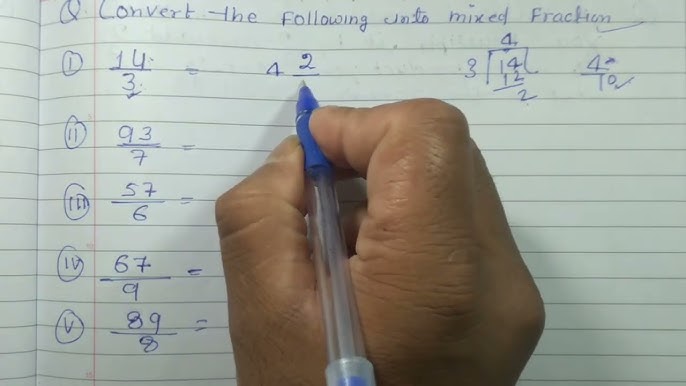 Q Convert the Following into mixed Fraction
(i) 14/3 = 4 2/
4
3 14
12
2
4
10
(ii) 93/7 =
(iii) 57/6 =
(iv) 67/9 =
(v) 89/8 =